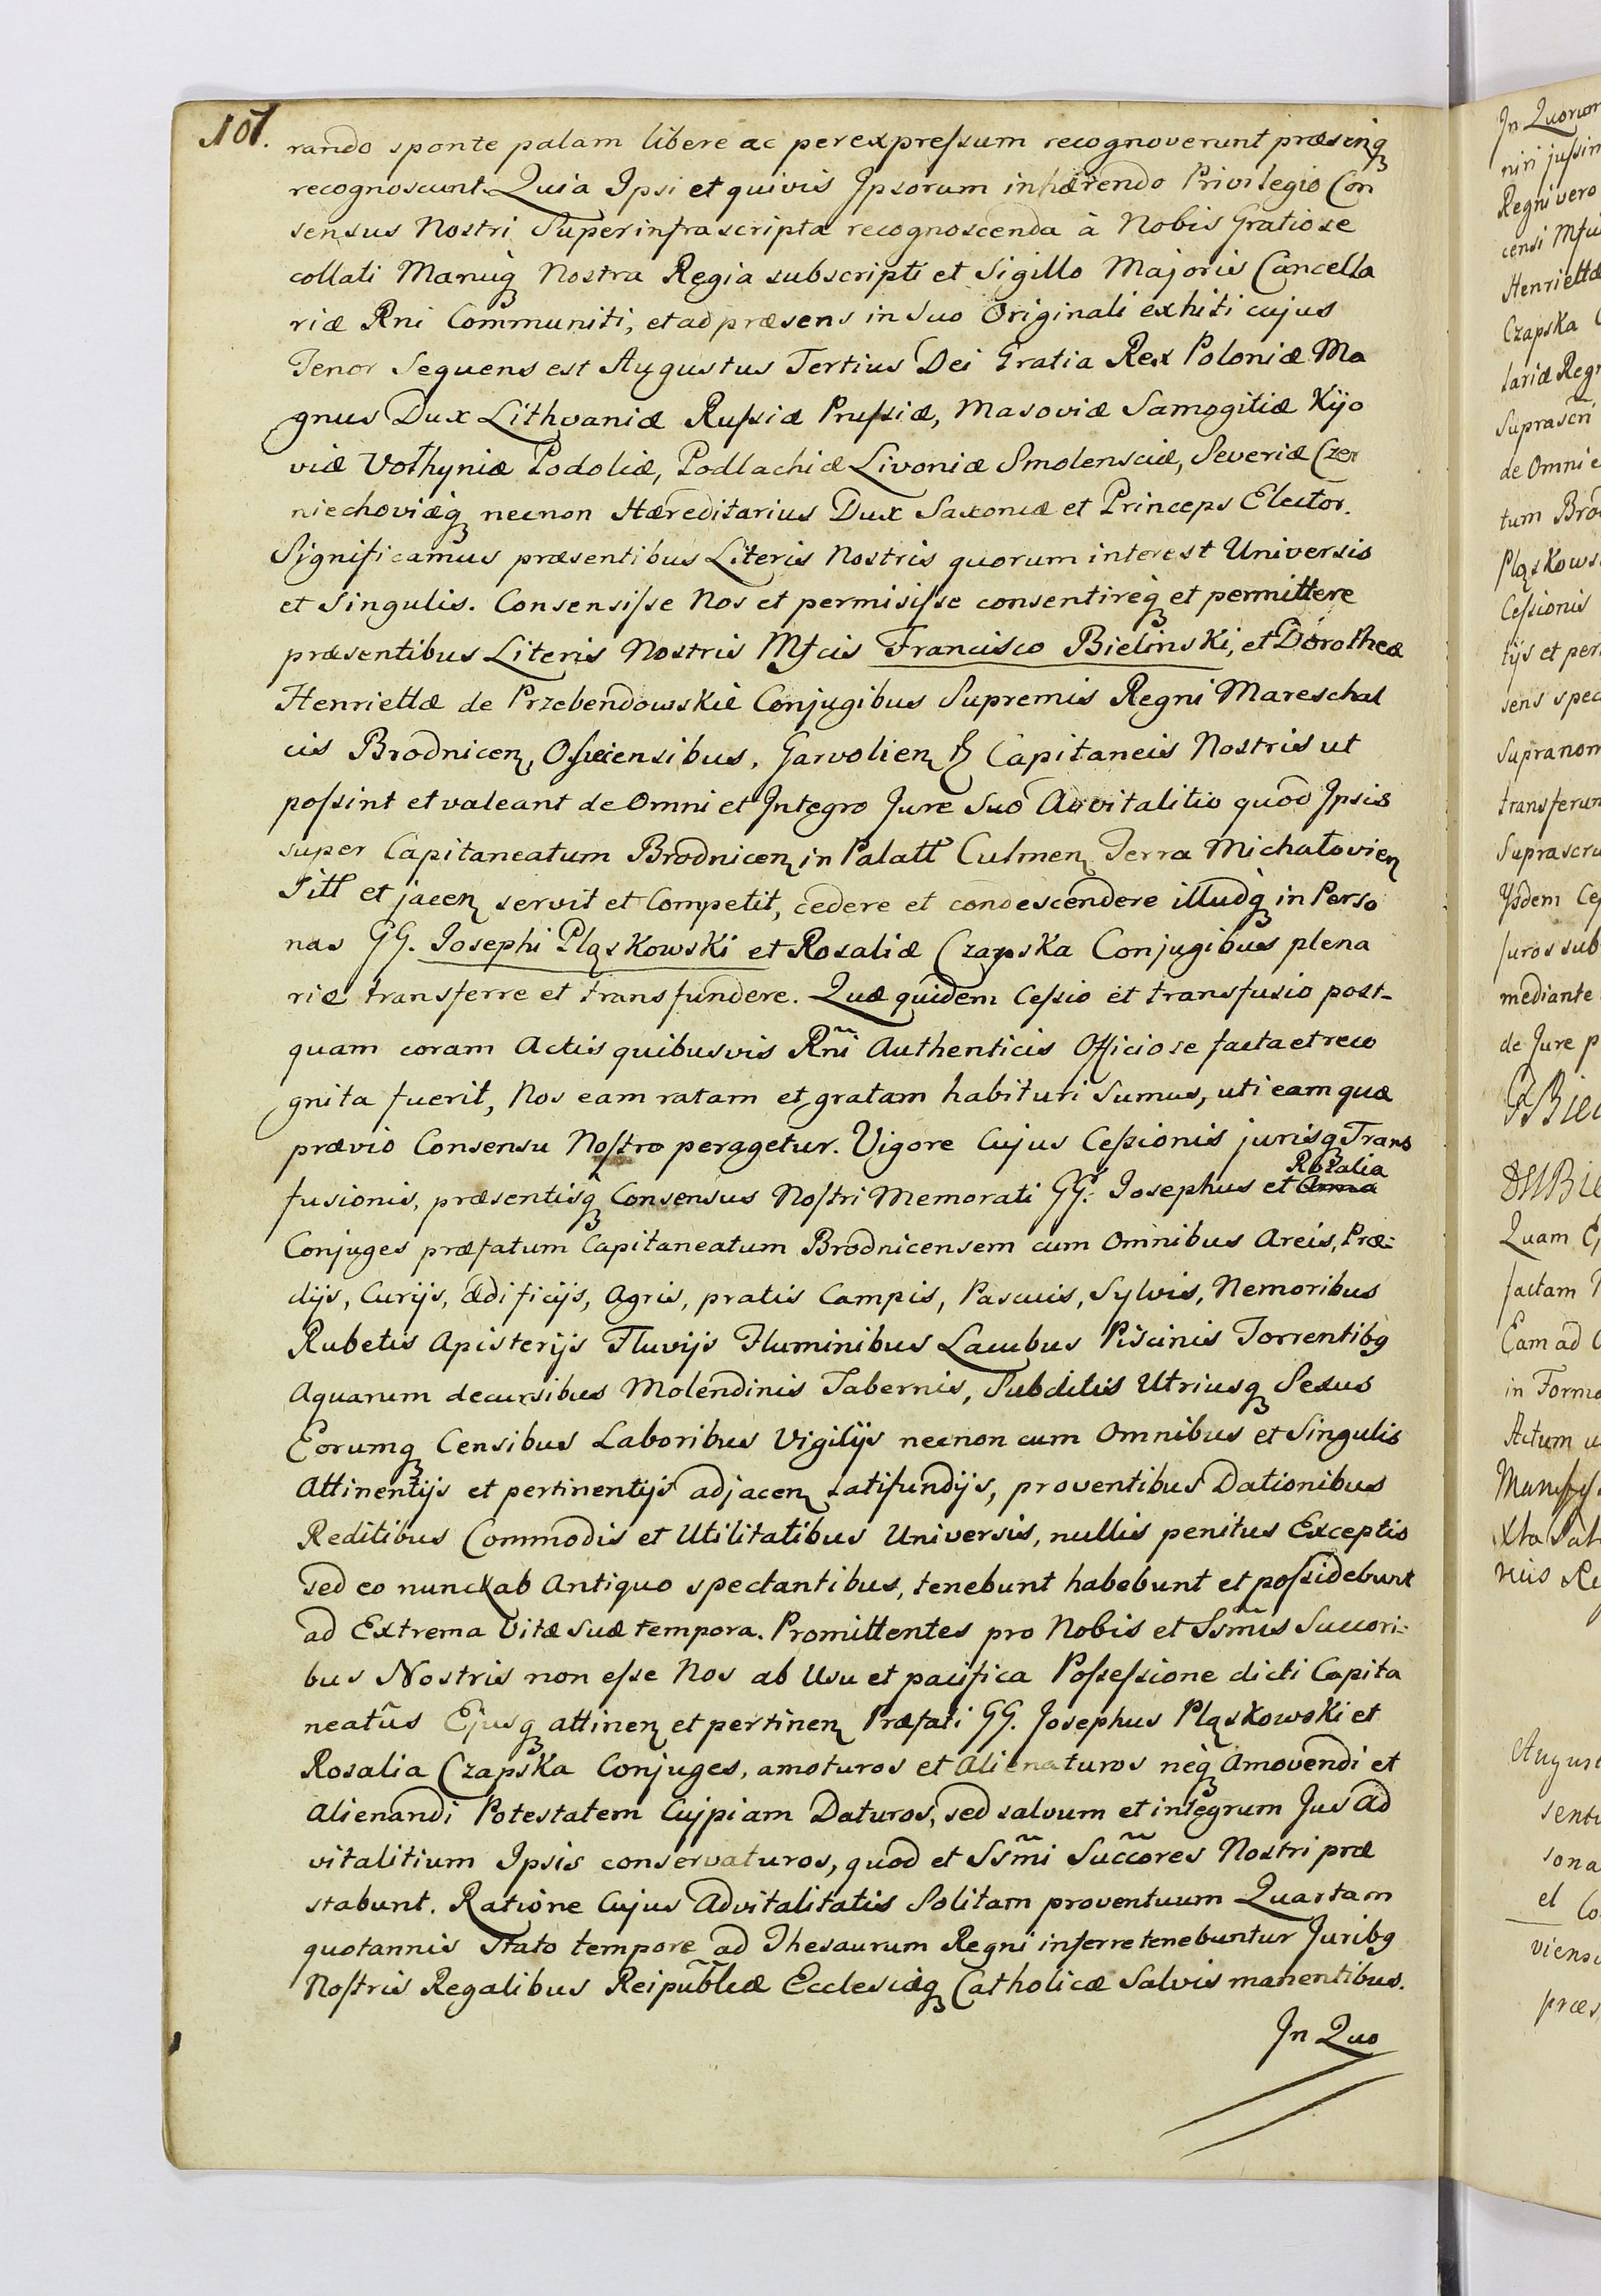 101.
rando sponte palam libere ac per expreſsum recognoverunt præsenq
recognoscunt. Quia Ipsi et quivis Ipsorum inhærendo Privilegio Con
sensus Nostri Super infrascripta recognoscenda à Nobis Gratiose
collati Manuq Nostra Regia subscripti et Sigillo Majoris Cancella
riæ Rni Communiti, et ad præsens in Suo Originali exhiti cujus
Tenor Sequens est Augustus Tertius Dei Gratia Rex Poloniæ Ma
gnus Dux Lithvaniæ Ruſsiæ Pruſsiæ, Masoviæ Samogitiæ Kijo
viæ Vołhyniæ Podoliæ, Podlachiæ Livoniæ Smolensciæ, Severiæ Czer
niechoviæq necnon Hæreditarius Dux Saxoniæ et Princeps Elector.
Significamus præsentibus Literis Nostris quorum interest Universis
et Singulis. Consensiſse Nos et permisiſse consentireq et permittere
præsentibus Literis Nostris Mfcis Francisco Bielinski, et Dorotheæ
Henriettæ de Przebendowskie Conjugibus Supremis Regni Mareschal
cis Brodnicen, Osiecensibus, Garvolien Capitaneis Nostris ut
poſsint et valeant de Omni et Integro Jure Suo Advitalitio quod Ipsis
super Capitaneatum Brodnicen in Palatt Culmen Terra Michałovien
Sitt et jacen servit et Competit, cedere et condescendere illudq in Perso
nas GG. Josephi Pląskowski et Rosaliæ Czapska Conjugibus plena
riæ transferre et transfundere. Quæ quidem Ceſsio et transfusio post-
quam coram Actis quibusvis Rñi Authenticis Officiose facta et reco
gnita fuerit, Nos eam ratam et gratam habituri Sumus, uti eam quæ
prævio Consensu Noſtro peragetur. Vigore Cujus Ceſsionis jurisq Trans
fusionis, præsentisq Consensus Noſtri Memorati GG. Josephus et Rosalia
Conjuges præfatum Capitaneatum Brodnicensem cum Omnibus Areis, Præ-
dijs, Curijs, ædificijs, Agris, pratis Campis, Pascuis, Sylvis, Nemoribus
Rubetis Apisterijs Fluvijs Fluminibus Lacubus Piscinis Torrentibq
Aquarum decursibus Molendinis Tabernis, Subditis Utriusq Sexus
Eorumq Censibus Laboribus Vigilijs necnon cum Omnibus et Singulis
Attinentijs et pertinentijs adjacen Latifundijs, proventibus Dationibus
Reditibus Commodis et Utilitatibus Universis, nullis penitus Exceptis
sed eo nunc ab Antiquo spectantibus, tenebunt habebunt et poſsidebunt
ad Extrema Vitæ Suæ tempora. Promittentes pro Nobis et Ssm̃is Succori-
bus Nostris non eſse Nos ab Usu et pacifica Poſseſsione dicti Capita
neatũs Ejusq attinen et pertinen Præfati GG. Josephus Pląskowski et
Rosalia Czapska Conjuges, amoturos et Alienaturos neq Amovendi et
Alienandi Potestatem Cujpiam Daturos, sed salvum et integrum Jus Ad
vitalitium Ipsis conservaturos, quod et Ssm̃i Succõres Nostri præ
stabunt. Ratione Cujus Advitalitatis Solitam proventuum Quartam
quotannis Stato tempore ad Thesaurum Regni inferre tenebuntur Juribq
Noſtris Regalibus Reipũblicæ Ecclesiæq Catholicæ Salvis manentibus.
In Quo
In Quorum
niri juſsim
Regni vero
Henriettæ
Czapska
tariæ Regn
Suprascri
de Omni e
tum Brod
Pląskows
Ceſsionis
tijs et per
sens spec
Supranom
transferun
Suprascri
juros sub
mediante
de Jure p
Quam
factam
Eam ad
in Forma
Actum u
August
senti
sona
el Co
viensi
præs